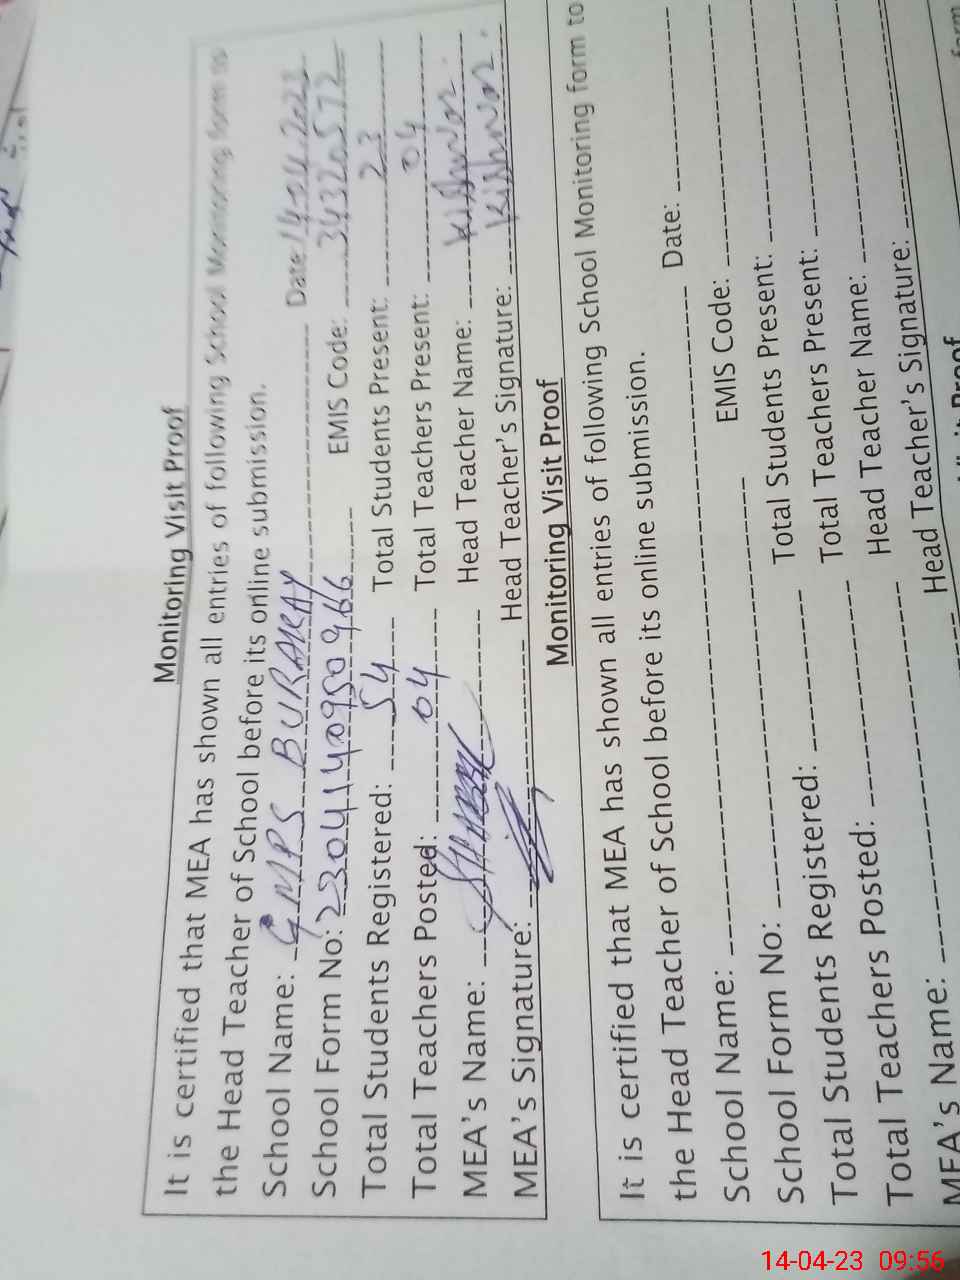 Monitoring Visit Proof
It is certified that MEA has shown all entries of following School Monitoring form to
the Head Teacher of School before its online submission.
School Name: GMPS BURAWAY Date: 14.04.2023
School Form No: 2304140950966 EMIS Code: 34320572
Total Students Registered: 54 Total Students Present: 23
Total Teachers Posted: 04 Total Teachers Present: 04
MEA's Name: Head Teacher Name: Kishwar
MEA's Signature: Head Teacher's Signature: Kishwar
Monitoring Visit Proof
It is certified that MEA has shown all entries of following School Monitoring form to
the Head Teacher of School before its online submission.
School Name: Date:
School Form No: EMIS Code:
Total Students Registered: Total Students Present:
Total Teachers Posted: Total Teachers Present:
MEA's Name: Head Teacher Name:
Head Teacher's Signature:
Visit Proof
form
14-04-23 09:56